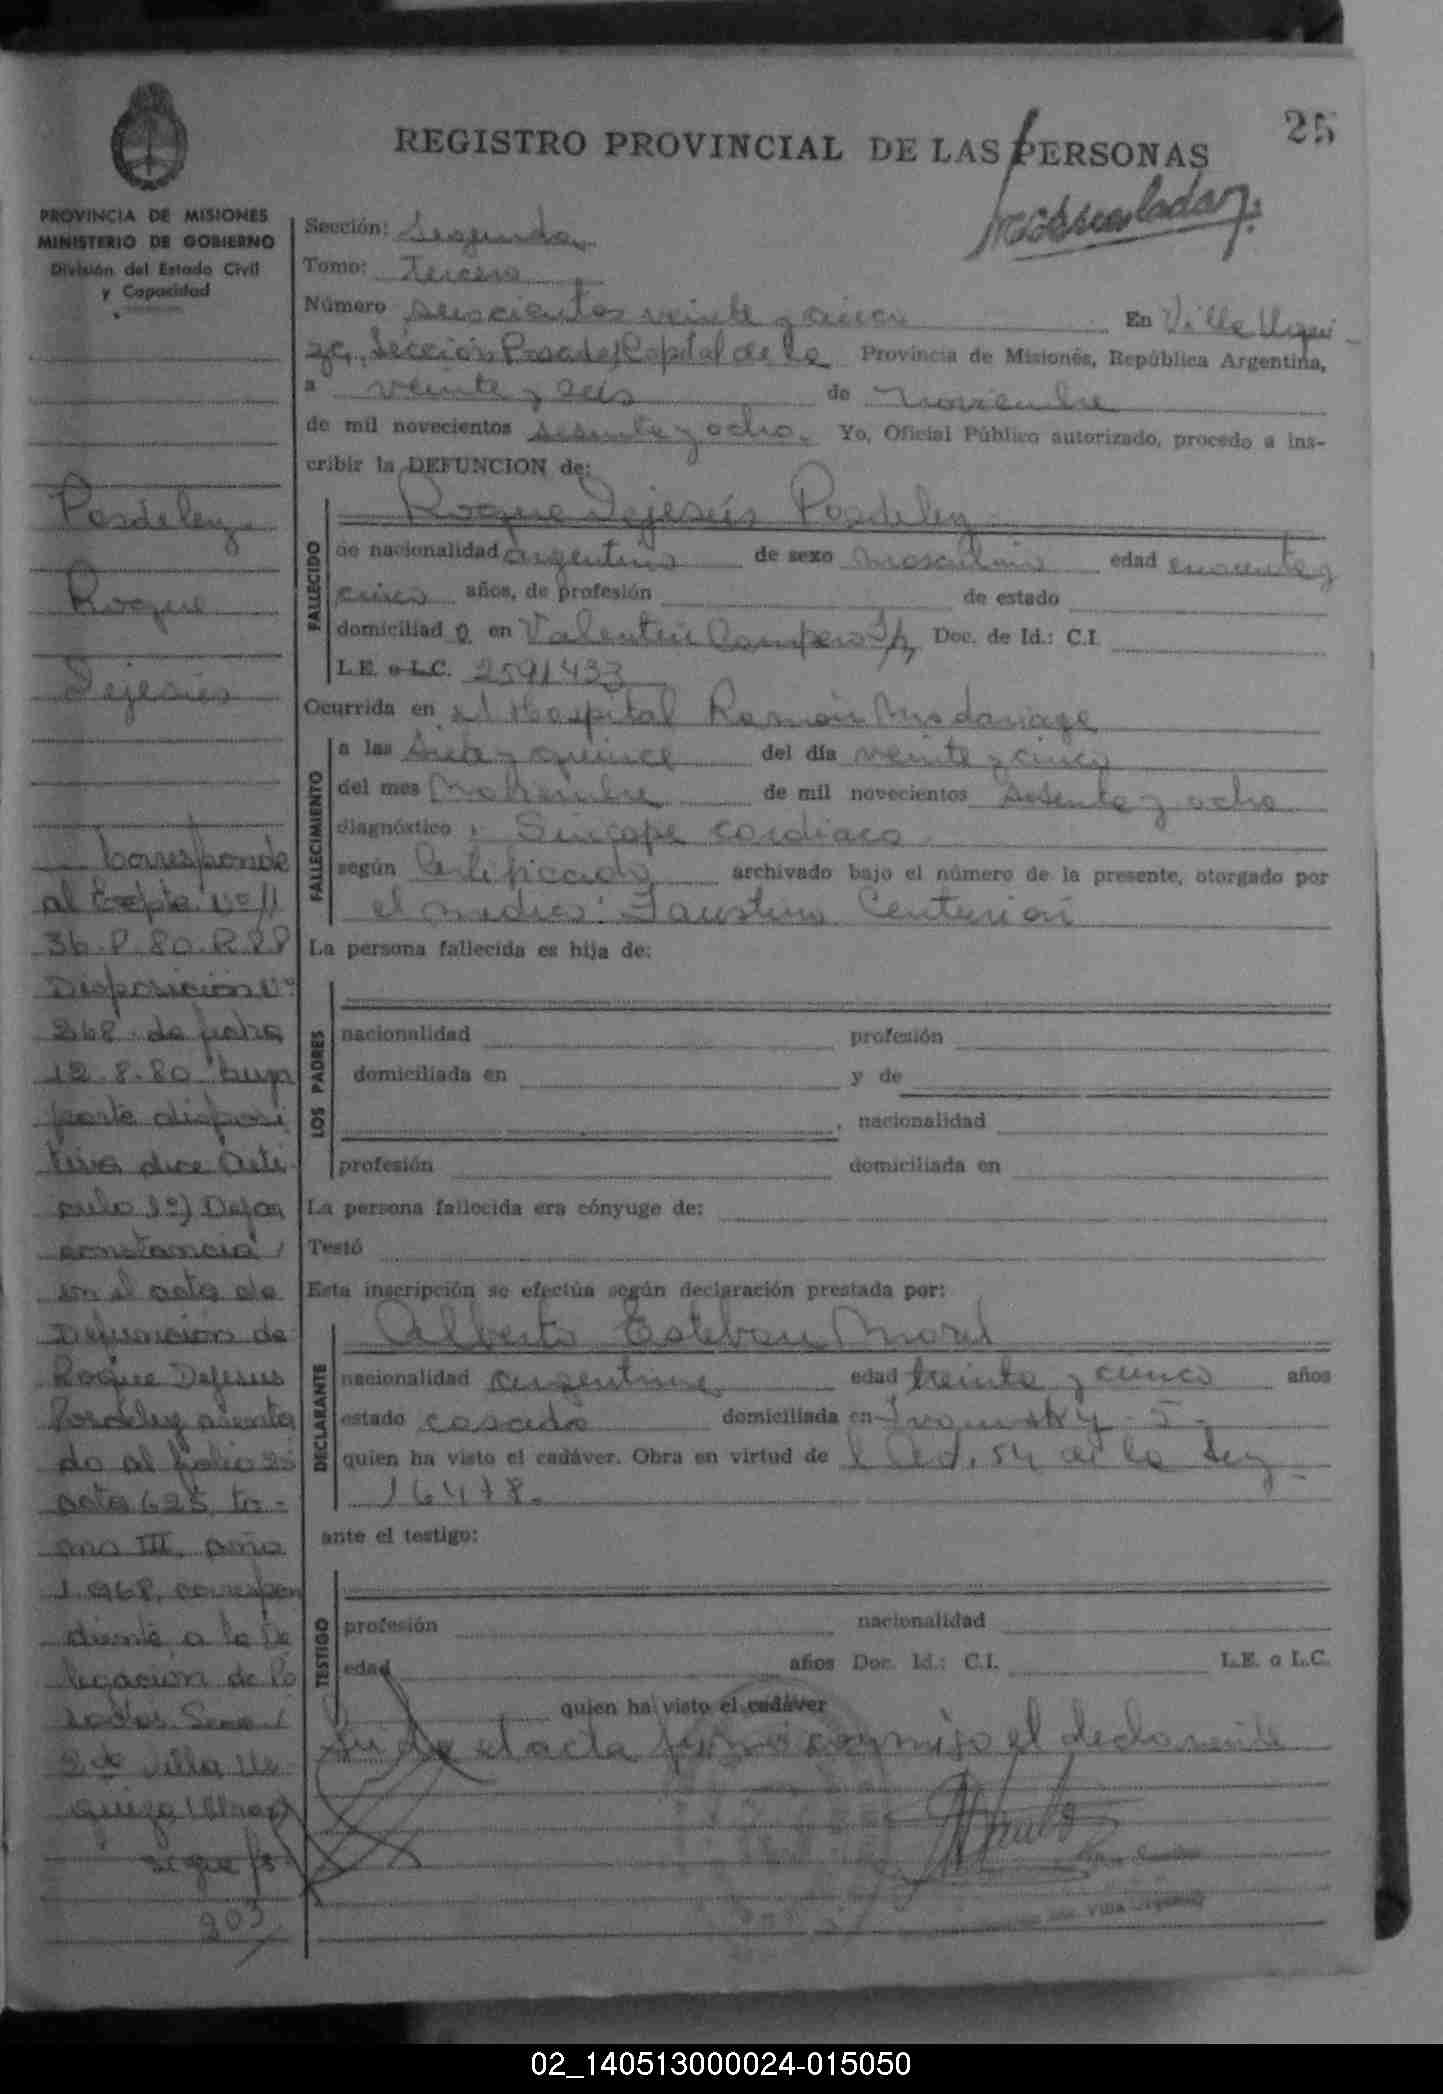 25
REGISTRO PROVINCIAL DE LAS PERSONAS
PROVINCIA DE MISIONES
MINISTERIO DE GOBIERNO
División del Estado Civil
y Capacidad
Posdeley
Roque
Dejesús
Corresponde
al Expte. Nº 11
36.P.80.R.P.P
Disposición Nº
268 de fecha
12.8.80 cuya
parte disposi
tiva dice Arti-
culo 1º) Dejar
constancia
en el acta de
Defunción de
Roque Dejesus
Posdeley asenta
do al folio 25
acta 625, to-
mo III, año
1.968, correspon
diente a la De
legación de Po
sadas Secc.
2da Villa Ur
quiza
sigue fs
203
Sección: Segunda
Tomo: Tercero
Número seiscientos veinte y cinco En Villa Urqui-
za, Sección Posadas Capital de la Provincia de Misiones, República Argentina,
a veinte y seis de noviembre
de mil novecientos sesenta y ocho. Yo, Oficial Público autorizado, procedo a ins-
cribir la DEFUNCION de:
Roque Dejesús Posdeley
FALLECIDO
de nacionalidad argentino de sexo masculino edad
cinco años, de profesión de estado
domiciliado en Valentín Campero S/N, Doc. de Id.: C.I.
L.E. o L.C. 2591433
Ocurrida en el Hospital Ramón Madariaga
FALLECIMIENTO
a las siete y quince del día veinte y cinco
del mes Noviembre de mil novecientos sesenta y ocho
diagnóstico: Sincope cardiaco
según Certificado archivado bajo el número de la presente, otorgado por
el medico: Faustino Centurión
La persona fallecida es hija de:
LOS PADRES
nacionalidad profesión
domiciliada en y de
, nacionalidad
profesión domiciliada en
La persona fallecida era cónyuge de:
Testó
Esta inscripción se efectúa según declaración prestada por:
Alberto Esteban Morel
DECLARANTE
nacionalidad argentina edad treinta y cinco años
estado casado domiciliada en 5-
quien ha visto el cadáver. Obra en virtud de l Art. 54 de la Ley
16478.
ante el testigo:
TESTIGO
profesión nacionalidad
edad años Doc. Id.: C.I. L.E. o L.C.
quien ha visto el cadáver
el acta firmó conmigo el declarante
Villa Urquiza
02_140513000024-015050